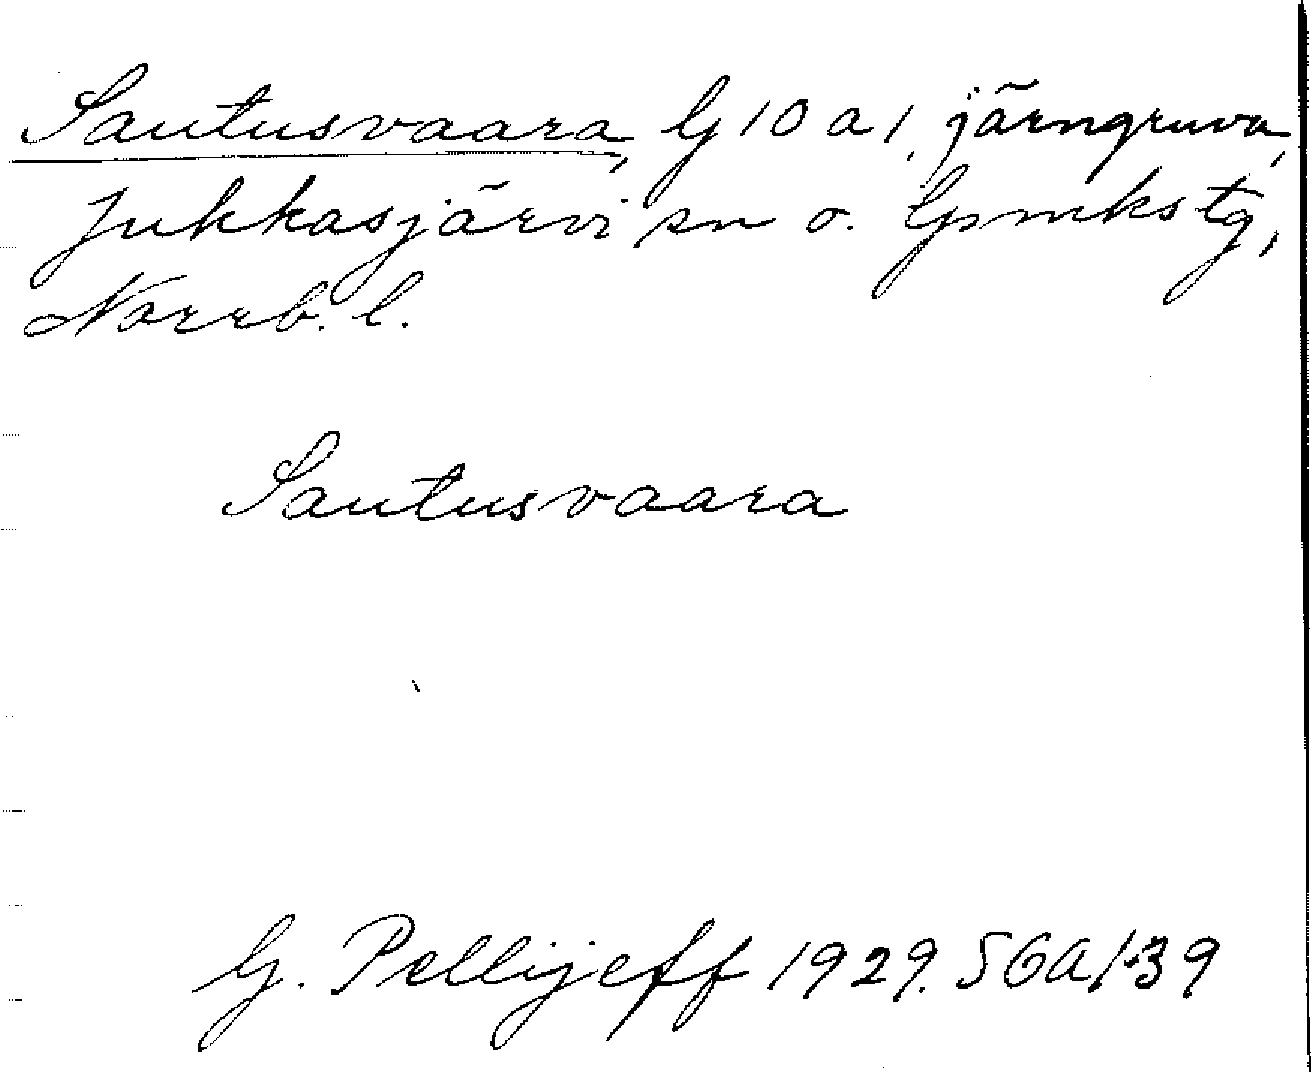 Sautusvaara, G 10 a 1, järngruva,
Jukkasjärvi sn o. Gsmkstg,
Norrb. l.
Sautusvaara
G. Pellijeff 1929. SOA/39